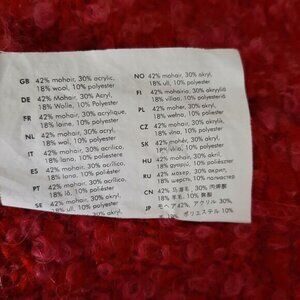 GB 42% mohair, 30% acrylic,
18% wool, 10% polyester
DE 42% Mohair, 30% Acryl,
18% Wolle, 10% Polyester
FR 42% mohair, 30% acrylique,
18% laine, 10% polyester
NL 42% mohair, 30% acryl,
18% wol, 10% polyester
IT 42% mohair, 30% acrilico,
18% lana, 10% poliestere
ES 42% mohair, 30% acrílico,
18% lana, 10% poliéster
PT 42% mohair, 30% acrílico,
18% lã, 10% poliéster
SE 42% mohair, 30% akryl,
18% ull, 10% polyester
NO 42% mohair, 30% akryl,
18% ull, 10% polyester
FI 42% mohairia, 30% akryyliä
18% villaa, 10% polyesteriä
PL 42% moher, 30% akryl,
18% wełna, 10% poliester
CZ 42% mohér, 30% akryl,
18% vlna, 10% polyester
SK 42% mohér, 30% akryl,
18% vlna, 10% polyester
HU 42% mohair, 30% akril,
18% gyapjú, 10% poliészter
RU 42% мохер, 30% акрил,
18% шерсть, 10% полиэстер
CN 42% 马海毛, 30%
18% 羊毛, 10%
JP モヘア42%, アクリル 30%,
ポリエステル 10%